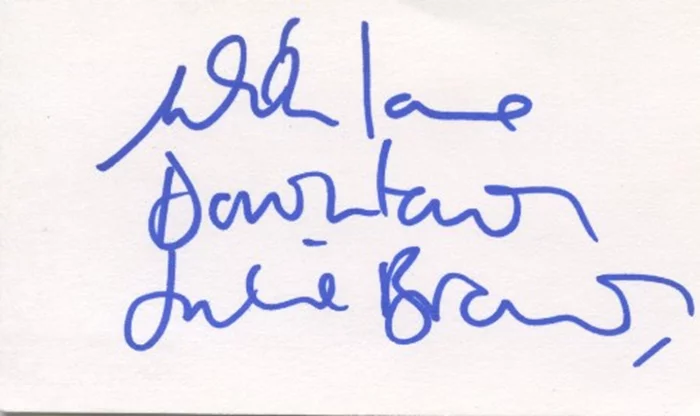 with love
Downtown
Julie Brown,